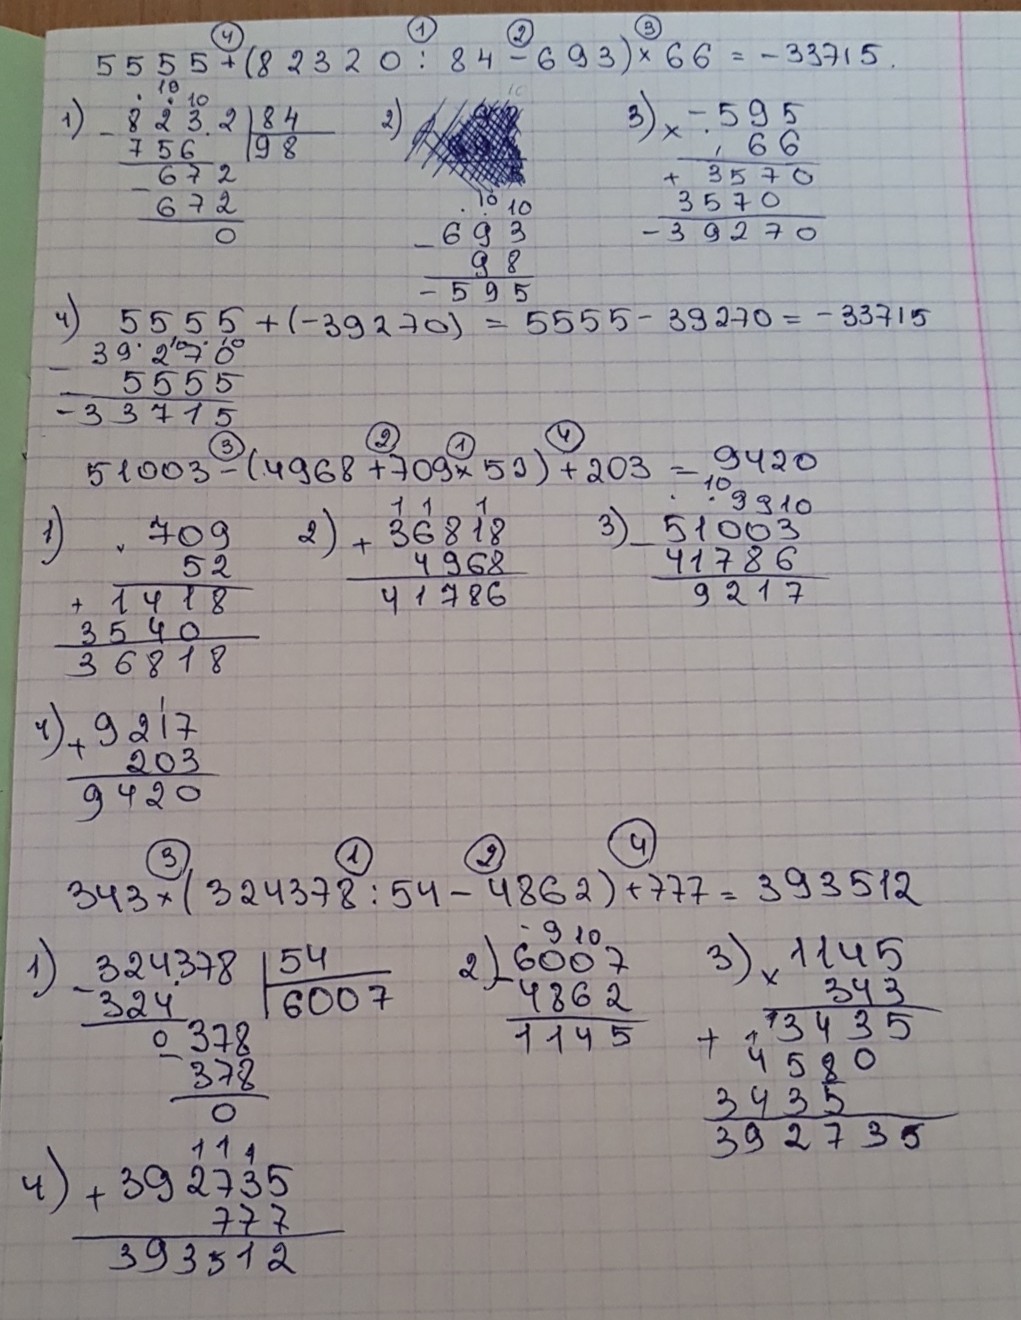 ④ ① ② ③
5555+(82320:84-693)×66=-33715.
1) 2) 3)
· 10 · 10
-823.2|84
756 |98
-672
672
0
· 10 · 10
-693
98
-595
×-.595
. 66
+ 3570
3570
-39270
4) 5555+(-39270)=5555-39270=-33715
- 39·2¹⁰7·0¹⁰
5555
-33715
③ ② ① ④
51003-(4968+709×52)+203=9420
1) 709
× 52
+ 1418
3540
36818
2) 1 1 1
+ 36818
4968
41786
3) · 10 · 9 9 10
- 51003
41786
9217
4) 1
+ 9217
203
9420
③ ① ② ④
343×(324378:54-4862)+777=393512
1) -324378|54
324. |6007
0378
- 378
0
2) · 9 10
- 6007
4862
1145
3) × 1145
343
+ 3435
4580
3435
392735
4) 1 1 1
+ 392735
777
393512